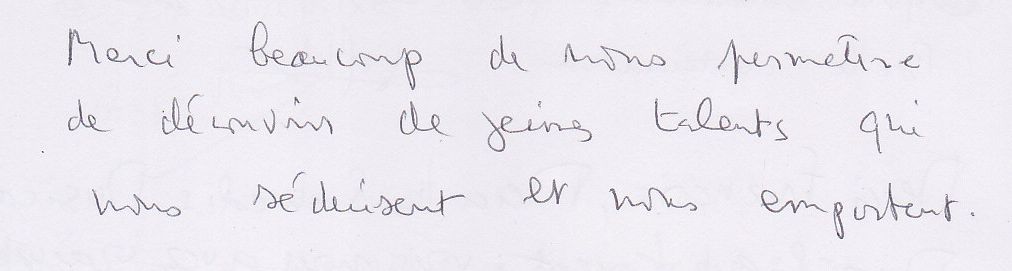 Merci beaucoup de nous permettre
de découvrir de jeunes talents qui
nous séduisent et nous emportent.